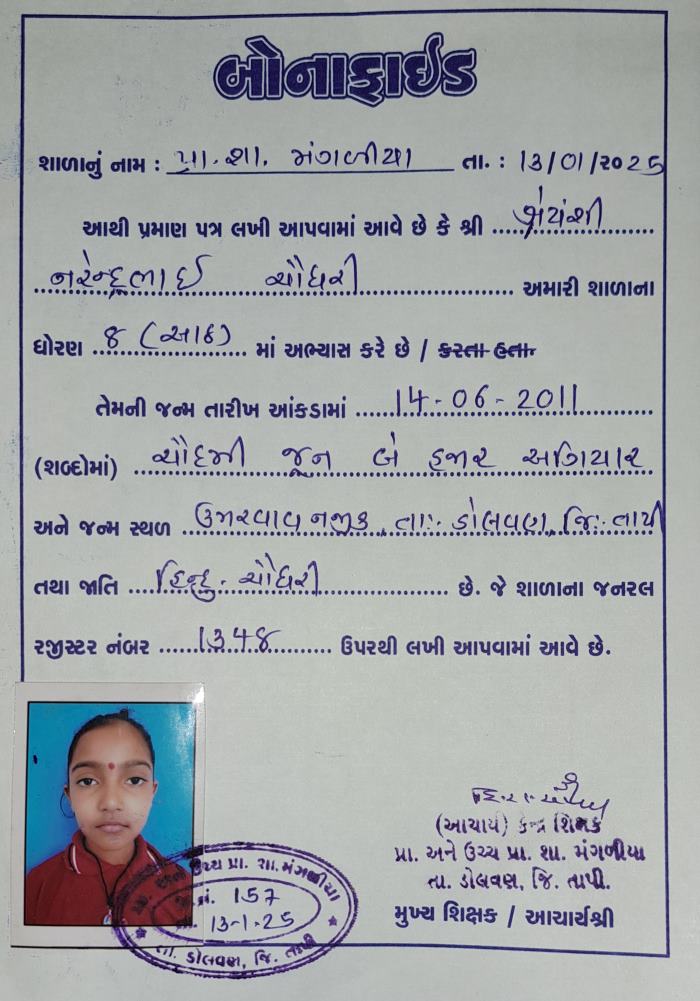 બોનાફાઇડ
શાળાનું નામ : પ્રા. શા. મંગળીયા તા. : 13/01/૨૦25
આથી પ્રમાણ પત્ર લખી આપવામાં આવે છે કે શ્રી શ્રેયંશી
નરેન્દ્રભાઈ ચૌધરી અમારી શાળાના
ધોરણ ૪ (આઠ) માં અભ્યાસ કરે છે / કરતા હતા.
તેમની જન્મ તારીખ આંકડામાં 14-06-2011
(શબ્દોમાં) ચૌદમી જૂન બે હજાર અગિયાર
અને જન્મ સ્થળ ઉમરવાવ નજીક, તા:- ડોલવણ, જિ:- તાપી
તથા જાતિ હિન્દુ. ચૌધરી છે. જે શાળાના જનરલ
રજીસ્ટર નંબર 1348 ઉપરથી લખી આપવામાં આવે છે.
(આચાર્ય) કેન્દ્ર શિક્ષક
પ્રા. અને ઉચ્ચ પ્રા. શા. મંગળીયા
તા. ડોલવણ, જિ. તાપી.
મુખ્ય શિક્ષક / આચાર્યશ્રી
ઉચ્ચ પ્રા. શા. મંગળીયા
નં. 157
13-1-25
તા. ડોલવણ, જિ. તાપી